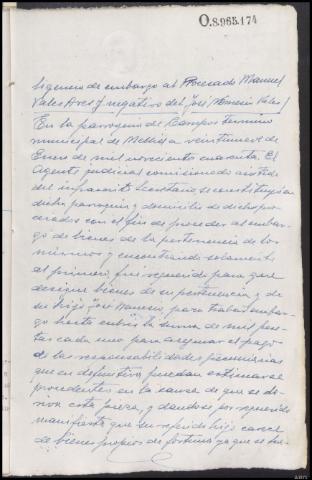 O.8.965.174
ligencia de embargo al Procesado Manuel
Vales Ares y negativo del José Manuel Vales
En la parroquia de Campos termino
municipal de Mellid a veintinueve de
Enero de mil novecientos cuarenta. El
Agente judicial comisionado asistido
del infrascrito Secretario se constituyó a
dicha parroquia y domicilio de dichos pro-
cesados con el fin de proceder al embar-
go de bienes de la pertenencia de los
mismos y encontrando solamente
al primero, fué requerido para que
designe bienes de su pertenencia y de
su hijo José Manuel, para trabar embar-
go hasta cubrir la suma de mil pese-
tas cada uno para asegurar el pago
de las responsabilidades pecuniarias
que en definitiva puedan estimarse
procedentes en la causa de que se de-
riva esta pieza, y dandose por requerido
manifiesta que su referido hijo carece
de bienes propios de fortuna ya que se